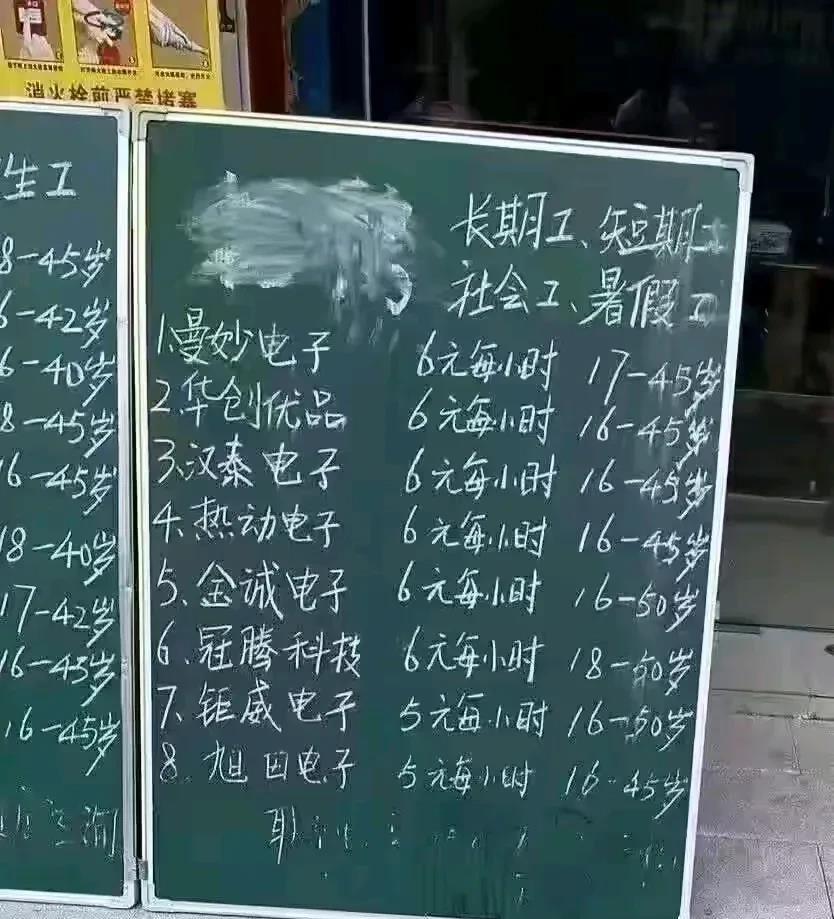 消火栓前严禁堵塞
生工
8-45岁
6-42岁
6-40岁
8-45岁
16-45岁
18-40岁
17-42岁
16-45岁
16-45岁
长期工、短期工
社会工、暑假工
1.曼妙电子 6元每小时 17-45岁
2.华创优品 6元每小时 16-45岁
3.汉泰电子 6元每小时 16-45岁
4.热动电子 6元每小时 16-45岁
5.金诚电子 6元每小时 16-50岁
6.冠腾科技 6元每小时 18-50岁
7.钜威电子 5元每小时 16-50岁
8.旭日电子 5元每小时 16-45岁